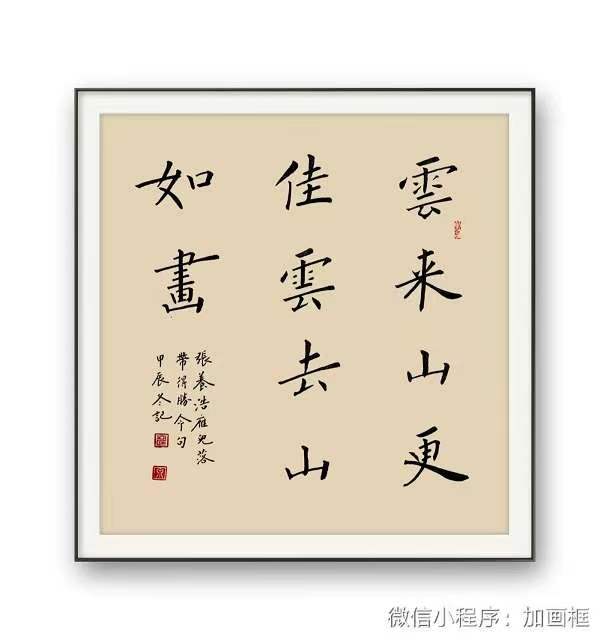 雲来山更
佳雲去山
如畫
張養浩雁兒落
帶得勝令句
甲辰冬記
微信小程序：加画框